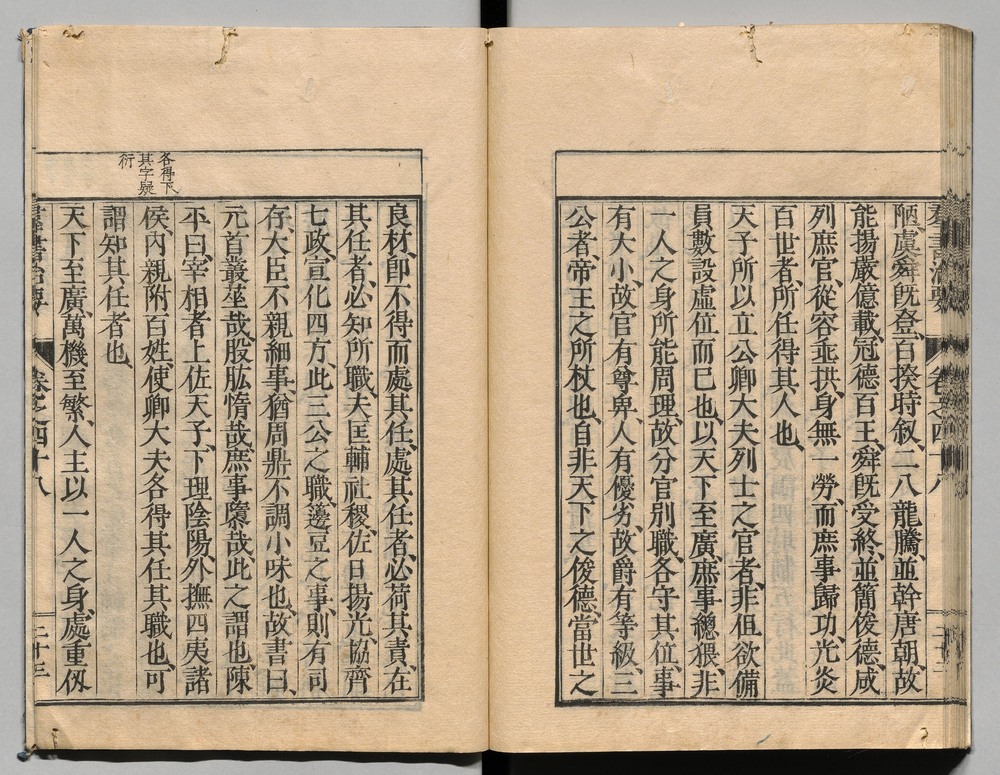 陋、虞舜既登、百揆時叙、二八龍騰、並幹唐朝、故
能揚嚴億載、冠德百王、舜既受終、並簡俊德、咸
列庶官、從容垂拱、身無一勞、而庶事歸功、光炎
百世者、所任得其人也、
天子所以立公卿大夫列士之官者、非但欲備
員數設虛位而已也、以天下至廣、庶事總猥、非
一人之身所能周理、故分官別職、各守其位、事
有大小、故官有尊卑、人有優劣、故爵有等級、三
公者、帝王之所杖也、自非天下之俊德、當世之
良材、即不得而處其任、處其任者、必荷其責、在
其任者、必知所職、夫匡輔社稷、佐日揚光、協齊
七政、宣化四方、此三公之職、籩豆之事、則有司
存、大臣不親細事、猶周鼎不調小味也、故書曰、
元首叢莝哉、股肱惰哉、庶事隳哉、此之謂也、陳
平曰、宰相者、上佐天子、下理陰陽、外撫四夷諸
侯、內親附百姓、使卿大夫各得其任其職也、可
謂知其任者也、
天下至廣、萬機至繁、人主以一人之身、處重仭
各得下
其字疑
衍
群書治要
卷之四十八
二十三